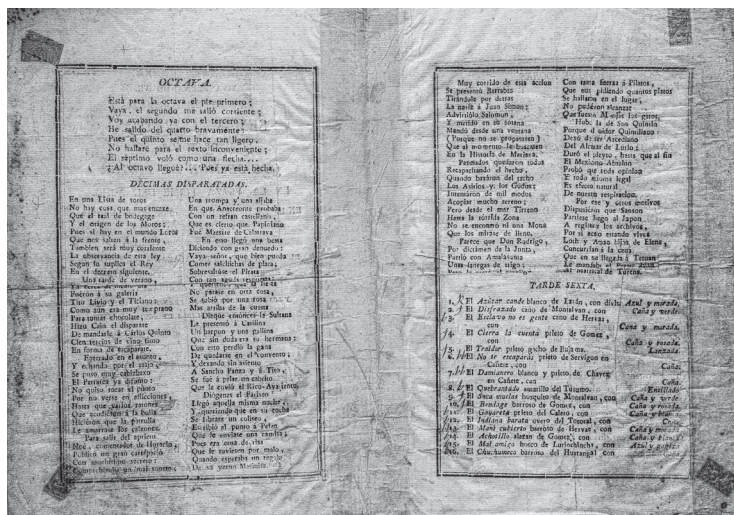 OCTAVA.
Está para la octava el pie primero;
Vaya, el segundo me salió corriente;
Voy acabando ya con el tercero;
He salido del quarto bravamente:
Pues el quinto se me hace tan ligero,
No hallaré para el sexto inconveniente;
El séptimo voló como una flecha....
¿Al octavo llegué?... Pues ya está hecha.
DÉCIMAS DISPARATADAS.
En una Lista de toros
No hay cosa que mas encaxe,
Que el real de
Y el orígen de los Moros;
Pues si hay en el mundo Loros
Que nos salten á la frente,
Tambien será muy corriente
La observancia de esta ley
Segun lo suplica el Rey
En el decreto siguiente.
Una tarde de verano,
Fuéron á su galería
Tito Livio y el Ticiano;
Como aún era muy temprano
Para tomar chocolate,
Hizo Cain el disparate
De mandarle á Carlos Quinto
Cien tercios de vino tinto
En forma de escaparate.
Enterado en el asunto,
Y echando por el atajo,
Se puso muy cabizbaxo
El Petrarca ya difunto
No quiso tocar el punto
Por no verse en aflicciones,
Hasta que varios ratones
Que acudieron á la bulla
Hiciéron que la patrulla
Le amarrase los calzones.
Para salir del aprieto
Noé, comentador de Horacio,
Publicó un gran cartapacio
Con muchísimo secreto:
Comprehendió un mal soneto,
Una trompa y una aljiba
En que Anacreonte probaba
Con un refran castellano,
Que es cierto que Papiniano
Fué Maestre de Calatrava
En esto llegó una bestia
Diciendo con gran denuedo:
Vaya señor, que bien puedo
Comer salchichas de plata;
Sobresaltóse el Pirata
Con tan aguda respuesta;
No parase en otra cosa,
Se subió por una rosa
Mas arriba de la cuesta
Dixole entónces la Sultana
Le presentó á Catilina
Un jarpon y una gallina
Que sin duda era su hermana;
Con esto perdió la gana
De quedarse en el convento;
Y dexando sin asiento
A Sancho Panza y á Tito,
Se fué á pelar un cabrito
Que le envió el Rico-Avariento.
Diógenes el Parisien
Llegó aquella misma noche,
Y queriendo que en su coche
Se librase un coliseo,
Escribió al punto á Peleo
Que le enviase una camisa;
Pues era cosa de risa
Que le tuviesen por malo,
Quando esperaba un regalo
De su yerno Masinisa.
Muy corrido de esta accion
Se presentó Barrabas
Tirándola por detras
La nariz á Juan Simon;
Advirtiólo Salomon,
Y metido en su sotana
Mandó desde una ventana
(Porque no se propasasen)
Que al momento la buscasen
En la Historia de Mariana.
Pasmados quedaron todos
Recapachando el hecho,
Quando baxáron del techo
Los Asirios y los Godos;
Intentáron de mil modos
Acopiar mucho sereno;
Pero desde el mar Tirreno
Hasta la tórrida Zona
No se encontró ni una Mona
Que los mirase de lleno.
Parece que Don Rodrigo,
Por dictámen de la Junta
Partió con Amalasunta
Unas fanegas de trigo;
Con tanta fuerza á Pilatos,
Que aun pidiendo quantos platos
Se hallaron en el lugar,
No pudiéron alcanzar
Que fuesen Monjas los gatos.
Hubo la de San Quintin
Porque el oidor Quintiliano
Dexó de ser Arcediano
Del Alcazar de Turin:
Duró el pleyto, hasta que al fin
El Mexicano Absalon
Probó que toda opinion
Y todo axioma legal
Es efecto natural
De nuestra respiracion.
Por ese y otros motivos
Dispusieron que Sanson
Partiese luego al Japon
A registrar los archivos,
Por si acto estando vivos
Loth y Aman hijos de Elena,
Concurrian á la cena
Que en su llegada á Tetuan
Le mandaba
Al mariscal de Turena.
TARDE SEXTA.
1. El Azúcar cande blanco de Ixtán, con divisa Azul y morada.
2. El Disfrazado caño de Montalvan, con Caña y verde.
3. El Esclavo no es gente cano de Hervas,
con Caña y morada.
4. El Cierra la cuenta prieto de Gomez,
con Caña y rosada.
5. El Traidor prieto gacho de Ilujma. Lanzada.
6. El No se escaparán prieto de Servigon en
Cañete, con Caña.
7. El Damianero blanco y prieto de Chavez
en Cañete, con Caña.
8. El Quebrantado amarillo del Tútumo. Ensillado.
9. El Saca muelas hosquito de Montalvan, con Caña y verde.
10. El Bendage barroso de Gomez, con Caña y rosada.
11. El Gayareta prieto del Calero, con Caña y blan.
12. El Indiana barata overo del Totoral, con Caña.
13. El Maní cubierto barroso de Hervas, con Caña y morada.
14. El Achotillo alazan de Gomez, con Caña y blanca.
15. El Mal amigo hosco de Lurinchincha, con Azul y pagiza.
16. El Chuchumeco barroso del Huarangal, con